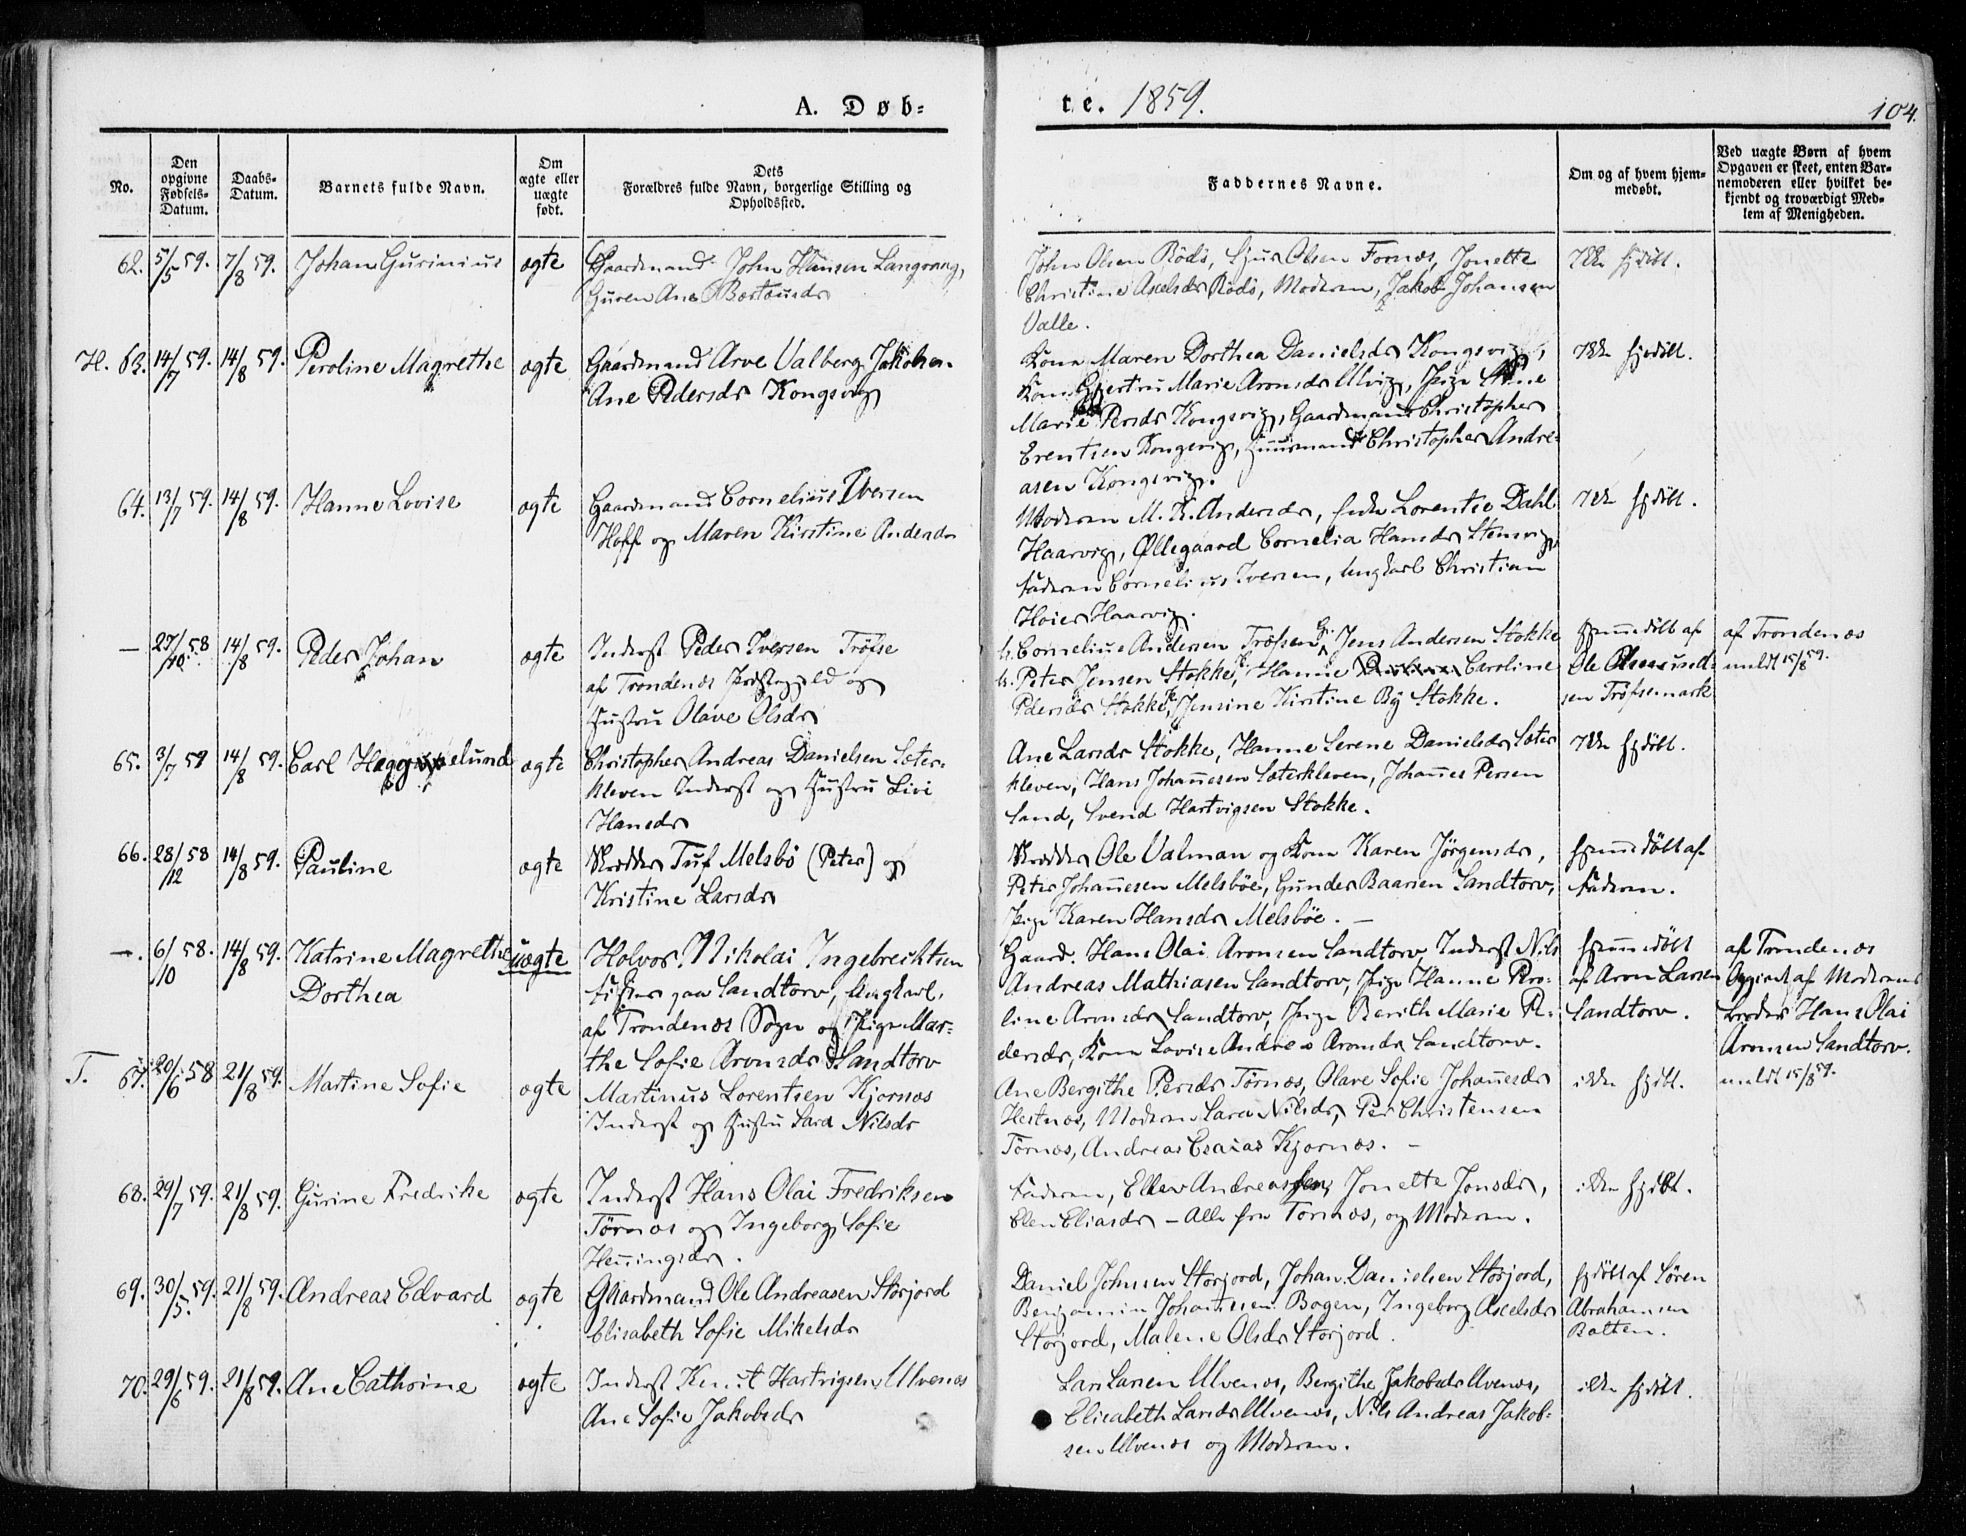 A. Døb=
te. 1859.
104.
No.
Den opgivne Fødsels-Datum.
Daabs-Datum.
Barnets fulde Navn.
Om ægte eller uægte født.
Dets Forældres fulde Navn, borgerlige Stilling og Opholdssted.
Faddernes Navne.
Om og af hvem hjemmedøbt.
Ved uægte Børn af hvem Opgaven er skeet, enten Barnemoderen eller hvilket bekjendt og troværdigt Medlem af Menigheden.
62. 5/5 59. 7/8 59. Johan Gurinius ægte
Gaardmand John Hansen Langvang,
Guren Ane Bærteusdr
John Olsen Rödö, Sjur Olsen Fornæs, Jonette
Christine Axelsdr Rödö, Moderen, Jakob Johansen
Valle.
H. 63. 14/7 59. 14/8 59. Peroline Magrethe ægte
Gaardmand Arve Valberg Jakobsen
Ane Pedersdr Kongsvig
Kone Maren Dorthea Danielsdr Kongsvig,
Kone Gjertru Marie Aronsdr Ulvig, Pige Stine
Marie Persdr Kongsvig, Gaardmand Christopher
Erentsen Kongsvig, Huusmand Christopher Andre=
asen Kongsvig.
64. 13/7 59. 14/8 59. Hanne Lovise ægte
Gaardmand Cornelius Iversen
Hoff og Maren Kirstine Andersdr
Moderen M. K. Andersdr, Lorentse Dahl
Haarvig, Øllegaard Cornelia Hansdr Stensvig,
Faderen Cornelius Iversen, Ungkarl Christian
Høier Haarvig.
— 27/10 58 14/8 59. Peder Johan ægte
Inderst Peder Iversen Tröfse
af Trondenæs Præstegjeld og
Hustru Olave Olsdr
Cornelius Andersen Træfsen, Jens Andersen Stokke
Peter Jensen Stokke, Hanne Caroline
Pedersdr Stokke, Jensine Kirstine By Stokke.
Hjemmedöbt af
Ole Amund=
sen Tröfsemark
af Trondenæs
meldt 15/8 59.
65. 3/7 59 14/8 59. Carl Heggelund ægte
Christopher Andreas Danielsen Sæter=
kleven Inderst og Hustru Livi
Hansdr
Ane Larsdr Stokke, Hanne Serene Danielsdr Sæter
kleven, Hans Johannesen Sæterkleven, Johannes Persen
Sand, Svend Hartvigsen Stokke.
66. 28/12 58 14/8 59. Pauline ægte
Skrædder Tuf Melsbö (Peter) og
Kristine Larsdr
Skrædder Ole Valman og Kone Karen Jörgensdr,
Peter Johannesen Melsböe, Gunder Baarsen Sandtorv,
Pige Karen Hansdr Melsböe. —
Hjemmedöbt af
Faderen.
—. 6/10 58. 14/8 59. Katrine Magrethe uægte
Dorthea
Holvor Nikolai Ingebrechtsen
Fisker paa Sandtorv, Ungkarl,
af Trondenæs Sogn og Pige Mar=
the Sofie Aronsdr Sandtorv
Gaard. Hans Olai Aronsen Sandtorv, Inderst Nils
Andreas Mathiasen Sandtorv, Pige Hanne Pero=
line Aronsdr Sandtorv, Pige Berith Marie Pe=
dersdr, Kone Lovise Andrea Aronsdr Sandtorv.
Hjemmedöbt
af Aron Larsen
Sandtorv.
af Trondenæs
Opgivet af Moderens
Broder Hans Olai
Aronsen Sandtorv.
meldt 15/8 59.
T. 67. 20/6 58 21/8 59. Martine Sofie ægte
Martinus Lorentsen Kjørnæs
Inderst og Hustru Sara Nilsdr
Ane Bergithe Persdr Törnæs, Olave Sofie Johannesdr
Hestnæs, Moderen Sara Nilsdr, Per Christensen
Törnæs, Andreas Esaias Kjørnæs. —
ikke hjdöbt.
68. 29/7 59. 21/8 59. Gurine Fredrike ægte
Inderst Hans Olai Fredriksen
Törnæs og Ingeborg Sofie
Henningsdr.
Faderen, Ellev Andreassen, Jonette Jonsdr,
Elen Eliasdr – Alle fra Törnæs, og Moderen.
ikke hjdöbt.
69. 30/5 59. 21/8 59. Andreas Edvard ægte
Gaardmand Ole Andreasen Storjord
Elisabeth Sofie Mikelsdr
Daniel Johnsen Storjord, Johan Danielsen Storjord,
Benjamin Johannesen Bogen, Ingeborg Axelsdr
Storjord, Malene Olsdr Storjord.
hjdöbt af Sören
Abrahamsen
Botten.
70. 29/6 59. 21/8 59. Ane Cathrine ægte
Inderst Knut Hartvigsen Ulvenæs
Ane Sofie Jakobsdr
Lars Larsen Ulvenæs, Bergithe Jakobsdr Ulvenæs,
Elisabeth Larsdr Ulvenæs, Nils Andreas Jakob=
sen Ulvenæs og Moderen.
ikke hjdöbt.